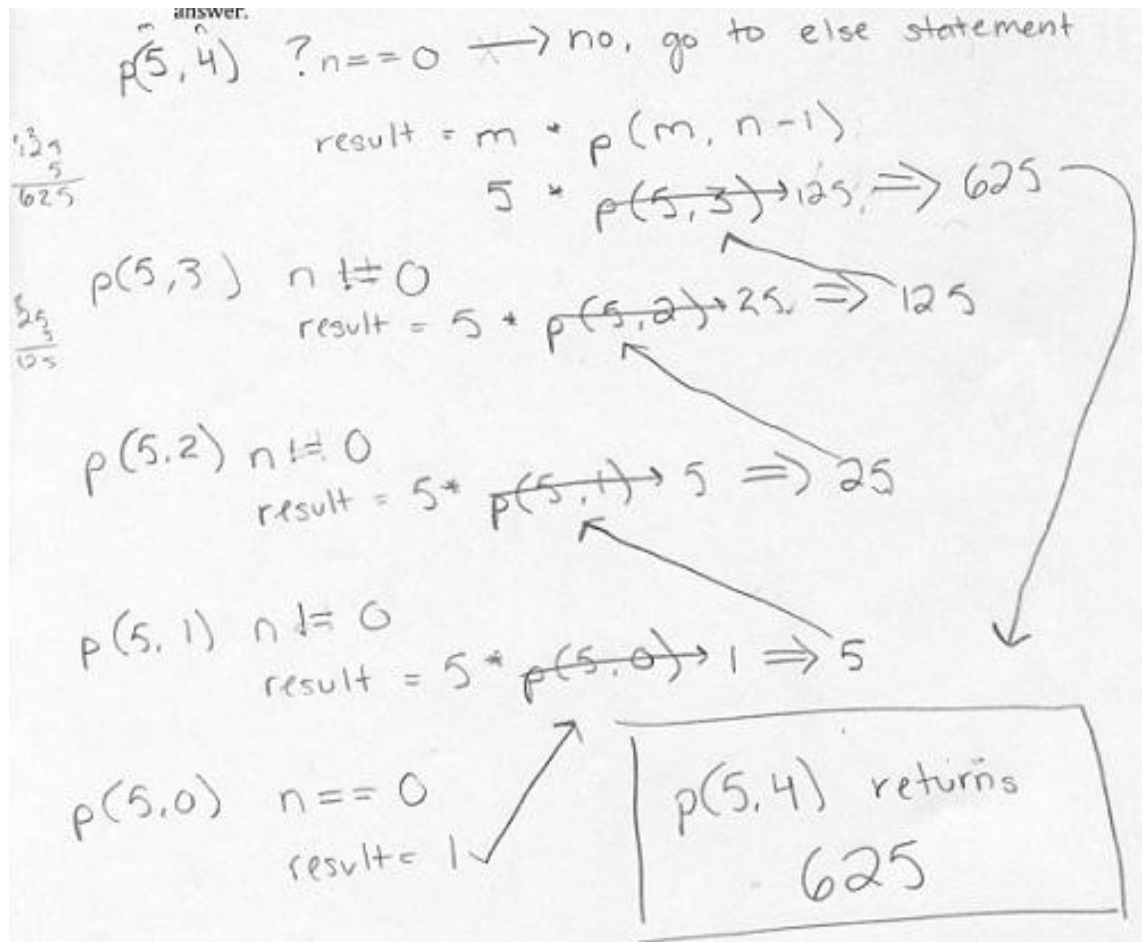 answer.
m n
p(5,4) ? n==0 → no, go to else statement
result = m * p(m, n-1)
5 * p(5,3) → 125 => 625
125
5
625
p(5,3) n != 0
result = 5 * p(5,2) → 25 => 125
25
5
125
p(5.2) n != 0
result = 5* p(5,1) → 5 => 25
p(5,1) n != 0
result = 5 * p(5,0) → 1 => 5
p(5,0) n == 0
result = 1
p(5,4) returns
625